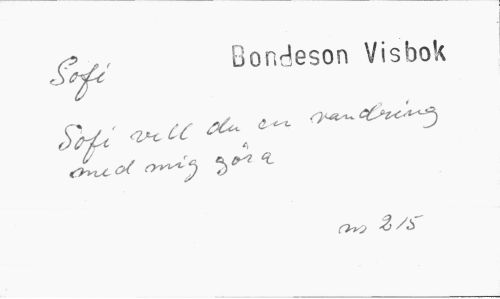 Sofi
Bondeson Visbok
Sofi vill du en vandring
med mig göra
ns 215